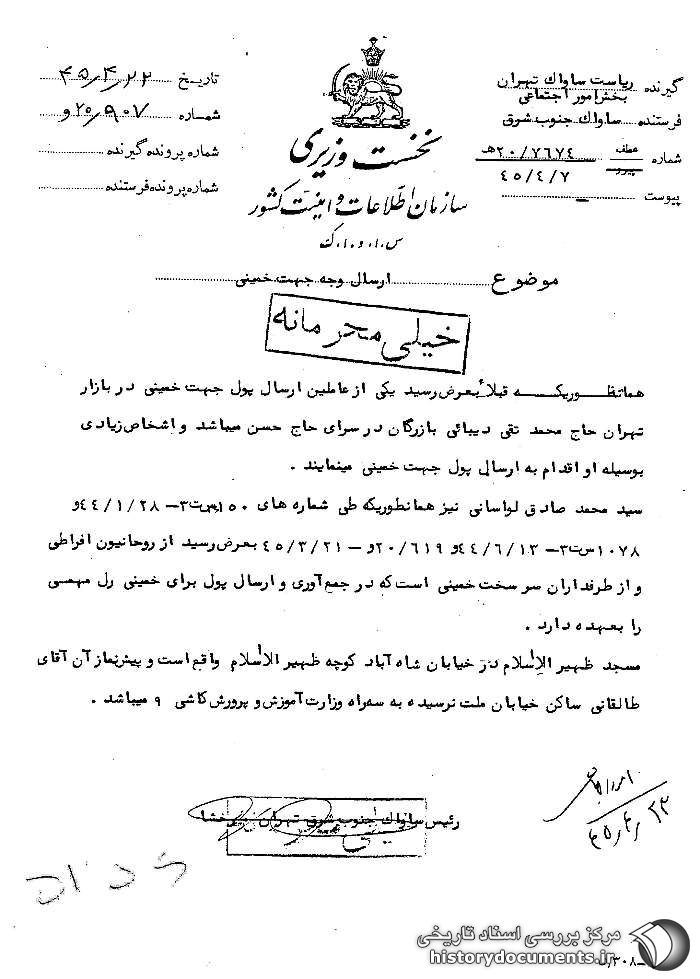 گیرنده ریاست ساواک تهران
بخش امور اجتماعی
فرستنده ساواک جنوب شرق
شماره عطف ۲۰/۷۶۷٤هـ
پیرو ٤٥/٤/۷
پیوست —
تاریخ ۴۵/۴/۲۲
شماره ۲۰/۹۰۷و
شماره پرونده گیرنده
شماره پرونده فرستنده
نخست وزیری
سازمان اطلاعات و امنیت کشور
س.ا.و.ا.ک
موضوع ارسال وجه جهت خمینی
خیلی محرمانه
همانطوریکه قبلاً بعرض رسید یکی از عاملین ارسال پول جهت خمینی در بازار
تهران حاج محمد تقی دیبائی بازرگان در سرای حاج حسن میباشد و اشخاص زیادی
بوسیله او اقدام به ارسال پول جهت خمینی مینمایند .
سید محمد صادق لواسانی نیز همانطوریکه طی شماره های ۱۵۰س‌ت۳ــ ٤٤/۱/۲۸ و
۱۰۷۸س‌ت۳ــ ٤٤/٦/۱۳ و ۲۰/٦۱۹و ــ ٤٥/۳/۲۱ بعرض رسید از روحانیون افراطی
و از طرفداران سر سخت خمینی است که در جمع آوری و ارسال پول برای خمینی رل مهمی
را بعهده دارد .
مسجد ظهیر الاسلام در خیابان شاه آباد کوچه ظهیر الاسلام واقع است و پیش‌نماز آن آقای
طالقانی ساکن خیابان ملت نرسیده به سه‌راه وزارت آموزش و پرورش کاشی ۹ میباشد .
رئیس ساواک جنوب شرق تهران
۴۵/۴/۲۳
مرکز بررسی اسناد تاریخی
historydocuments.ir